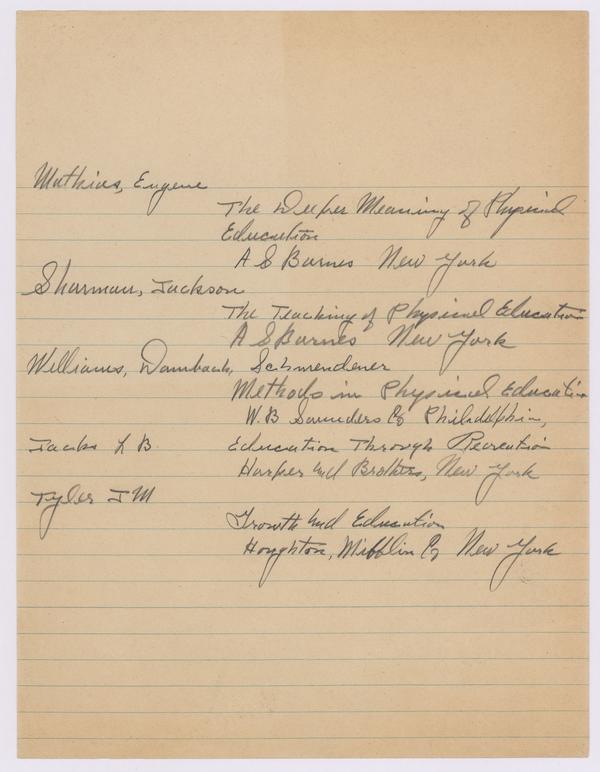 Mathias, Eugene
The Deeper Meaning of Physical
Education
A S Barnes New York
Sharman, Jackson
The Teaching of Physical Education
A S Barnes New York
Williams, Dambach, Schwendener
Methods in Physical Education
W. B Saunders Co Philadelphia,
Jacks L B Education Through Recreation
Harper and Brothers, New York
Tyler J M
Growth and Education
Houghton, Mifflin Co New York